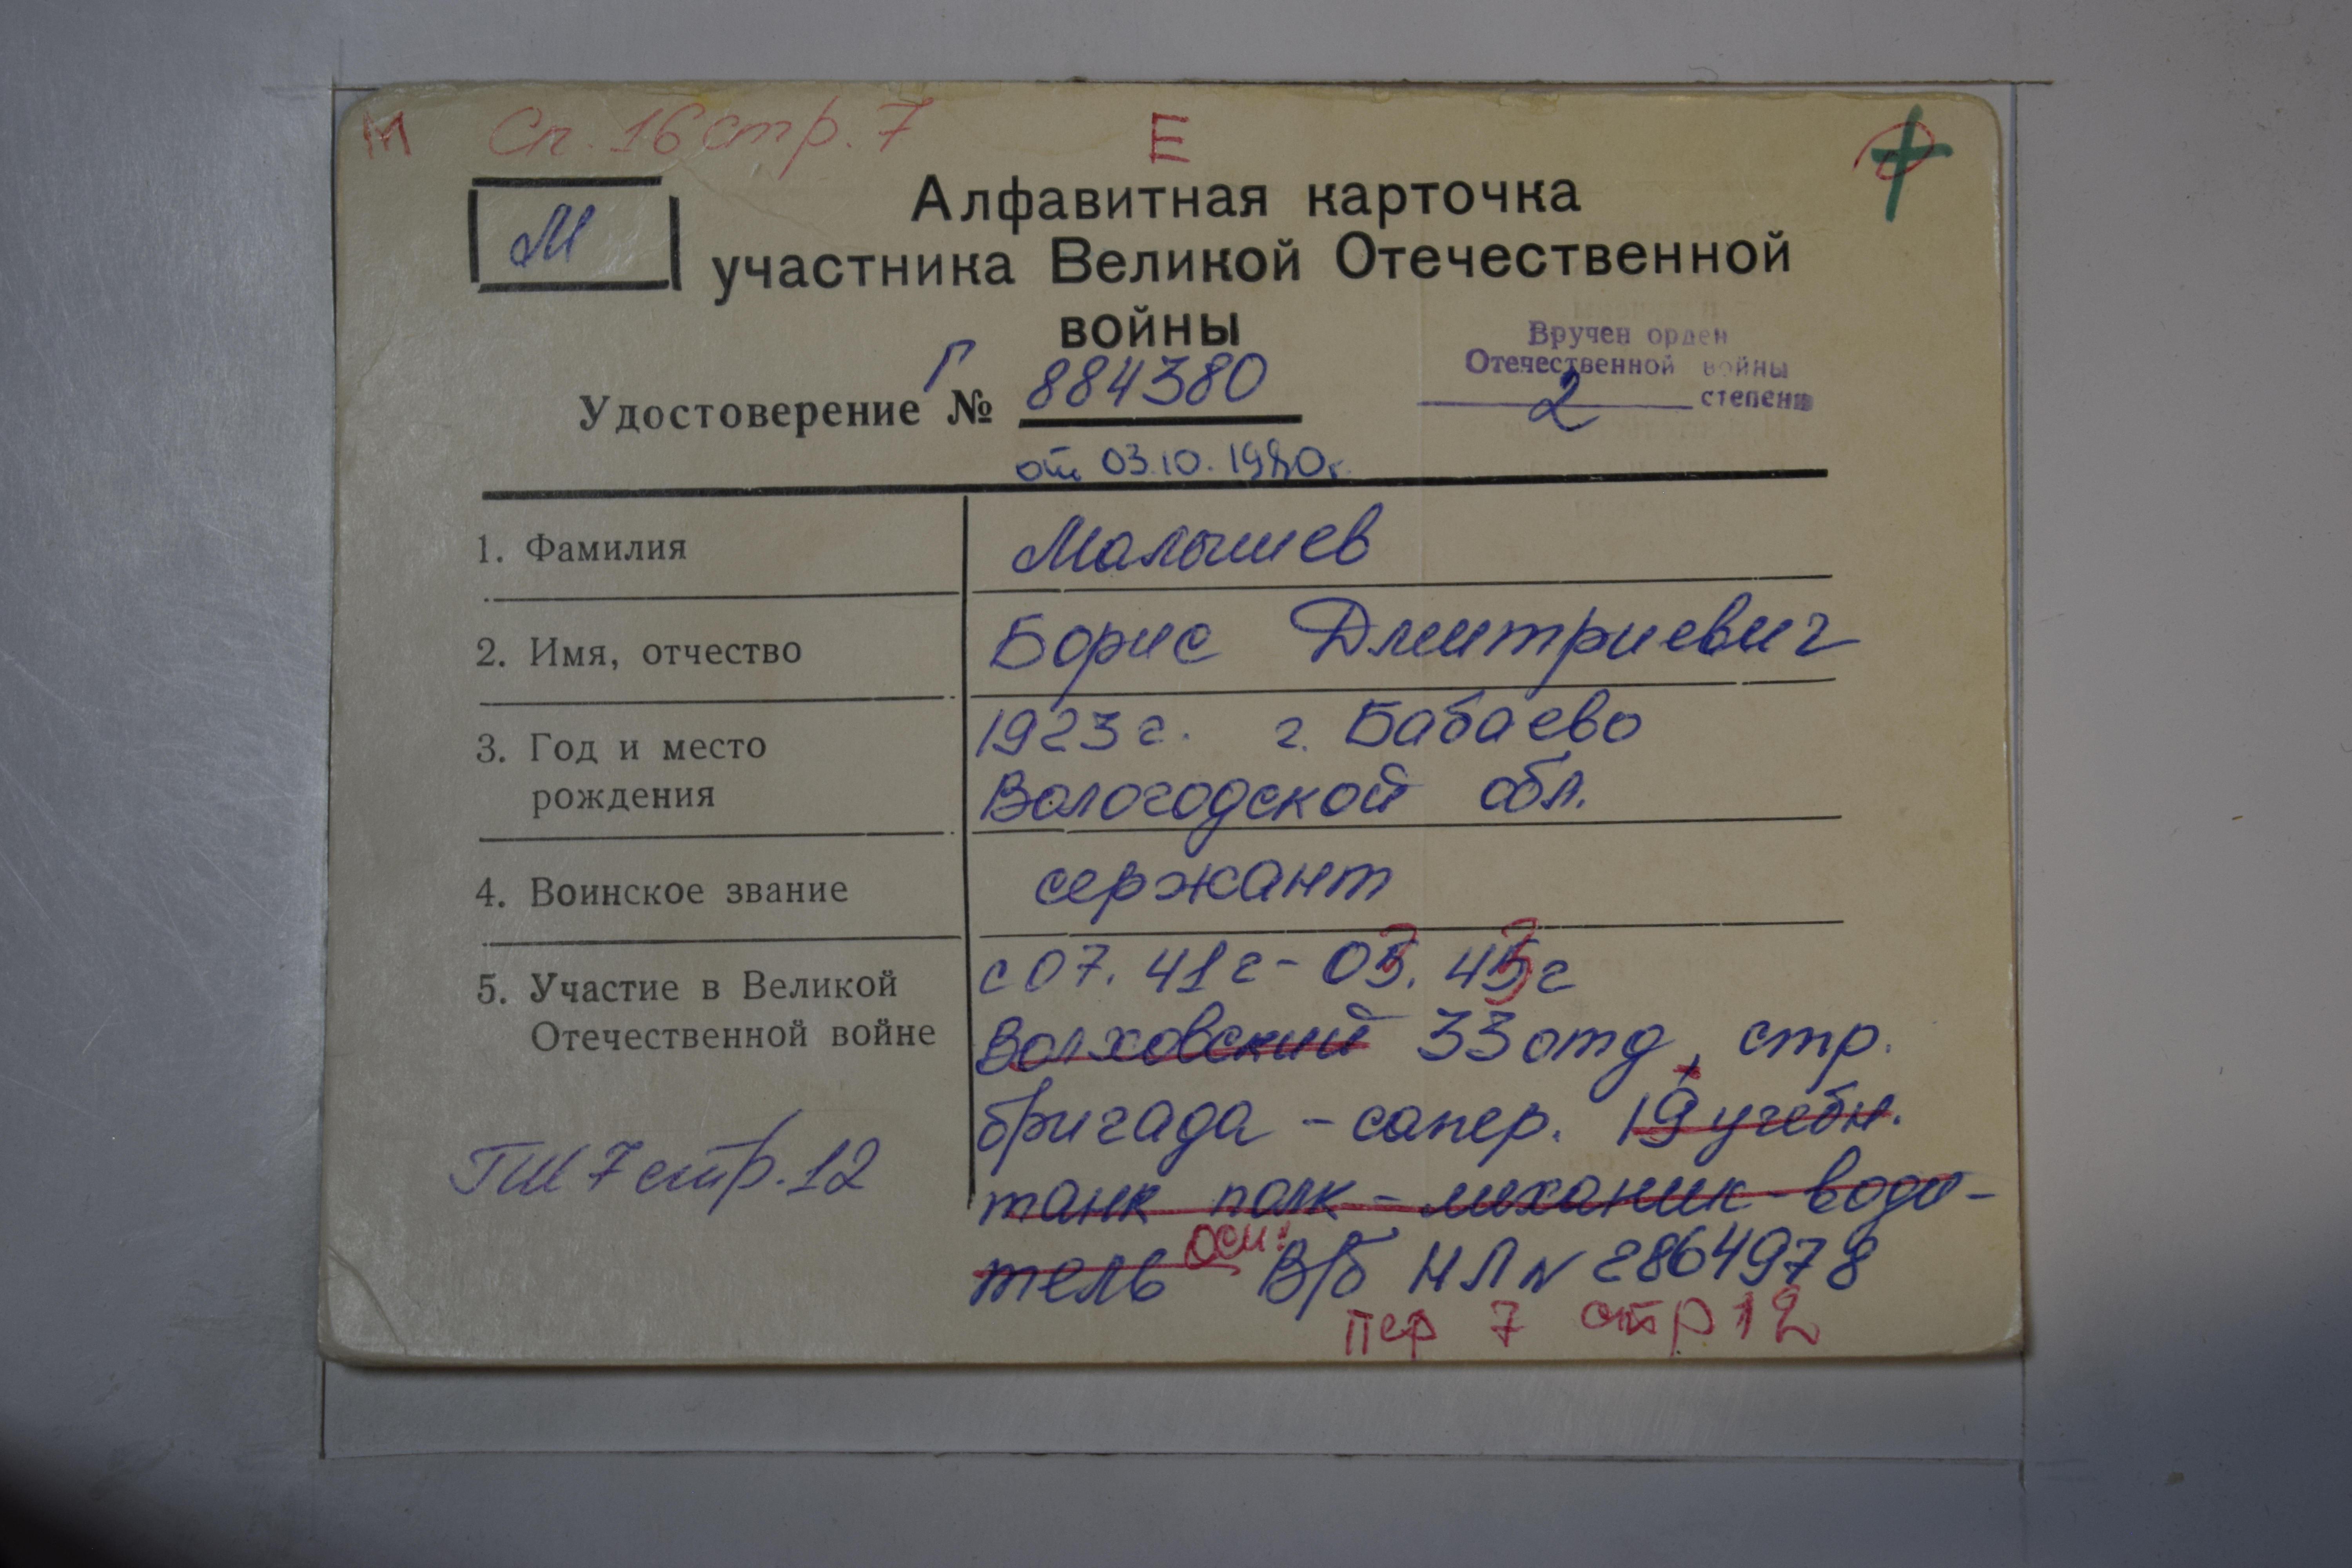 М Сп. 16 стр. 7 Е
М
Алфавитная карточка
участника Великой Отечественной
войны
Вручен орден
Отечественной войны
2 степени
Удостоверение Г № 884380
от 03.10.1980г.
1. Фамилия Малышев
2. Имя, отчество Борис Дмитриевич
3. Год и место 1923г. г. Бабаево
рождения Вологодской обл.
4. Воинское звание сержант
5. Участие в Великой с 07.41г - 03.43г
Отечественной войне Волховский 33 отд, стр.
бригада - сапер. 19 учебн.
ГШ 7 стр. 12 танк полк - механик-води-
тель осн: В/б НЛ № 2864978
пер 7 стр 12